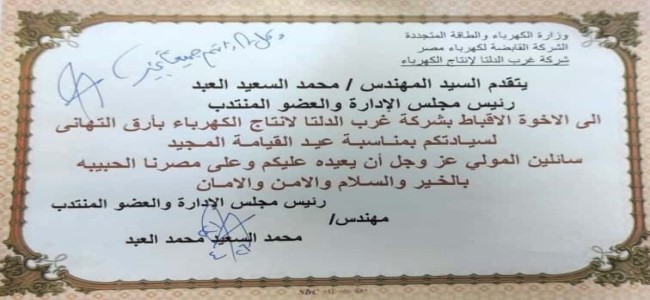 وزارة الكهرباء والطاقة المتجددة
الشركة القابضة لكهرباء مصر
شركة غرب الدلتا لإنتاج الكهرباء
يتقدم السيد المهندس / محمد السعيد العبد
رئيس مجلس الإدارة والعضو المنتدب
الى الاخوة الاقباط بشركة غرب الدلتا لانتاج الكهرباء بأرق التهانى
لسيادتكم بمناسبة عيد القيامة المجيد
سائلين المولي عز وجل أن يعيده عليكم وعلى مصرنا الحبيبه
بالخير والسلام والامن والامان
رئيس مجلس الإدارة والعضو المنتدب
مهندس/
محمد السعيد محمد العبد